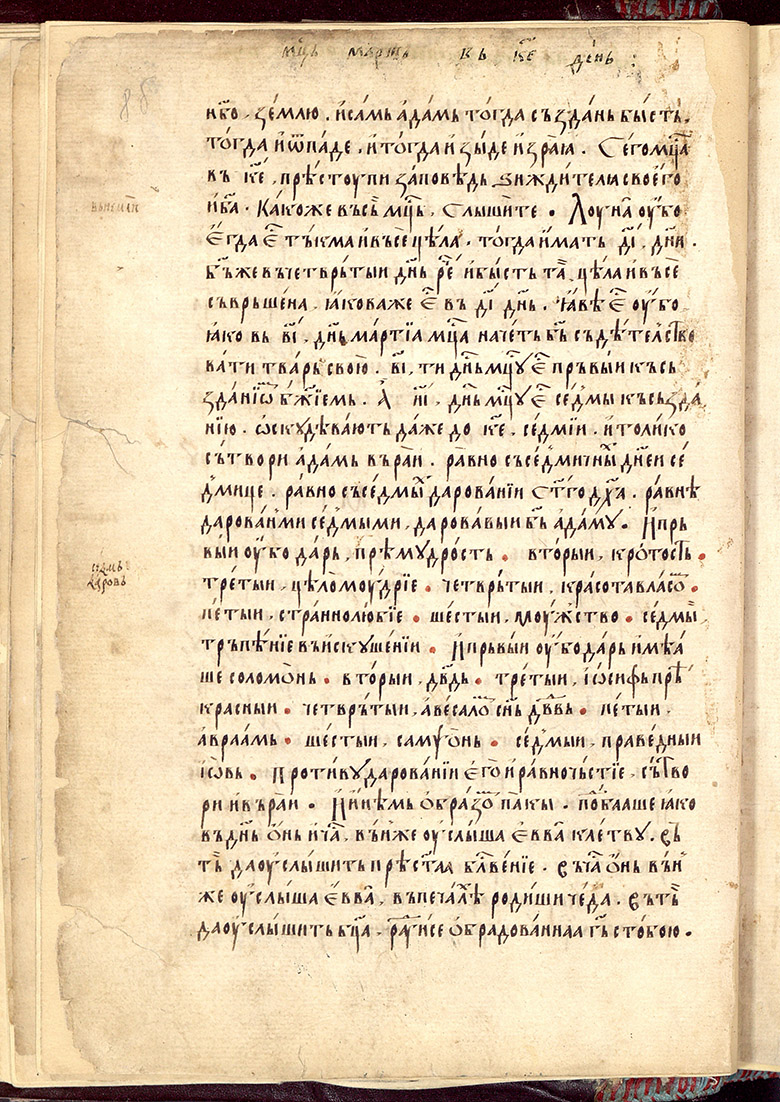 мⷭ҇ць мартъ въ к҃е день :
нб҃о . зе́млю . и҆са́мь а҆да́мь то́гда създа́нь бы́сть .
то́гда и҆ѿпа́де . и҆то́гда и҆ зы́де и҆зра́ꙗ . Сегомⷭ҇ца
въ к҃е , прѣстоупи за́повѣдь , зижди́телꙗ своего́
и҆б҃а . Ка́коже въсь мⷭ҇ць , слы́шите . Лоуна̀ оу҆́бо
є҆гда є҆ⷭ҇ тъ́кма и҆въсе цѣ́ла . то́гда и҆́мать д҃і , дн҃и .
бъ҃же въчетврь́тыи дн҃ь рече́ и҆бы́сть та̀ , цѣ́ла и҆въ се
съврьше́на . ꙗ҆́коваже є҆ⷭ҇ въ д҃і дн҃ь . ꙗ҆́вѣ є҆ⷭ҇ оу҆́бо
ꙗ҆́ко въ в҃і , дн҃ь ма́ртїа мⷭ҇ца наче́ть бъ҃ съдѣ́телство
ва́ти тва́рь свою̀ . в҃і , ти дн҃ь мⷭ҇цꙋ є҆ⷭ҇ прь́выи късь
зда́нїѡ бж҃їемь . А҆ и҃і , дн҃ь мⷭ҇цꙋ є҆ⷭ҇ седмы късьзда
нїю . ѡ҆скꙋдѣва́ють да́же до к҃е , се́дмїи . и҆толи́ко
сътвори а҆да́мь въра́и . ра́вно съсе́дмичныⷯ дн҃еи се́
дмице . ра́вно съсе́дмыⷯ дарова́нїи ст҃го дх҃а . ра́внѣ
дарова́нми се́дмыми , дарова́выи бъ҃ а҆да́мꙋ . И҆прь
выи оу҆́бо да́рь , прѣмꙋ́дрость . вто́рыи , кро́тость .
тре́тыи , цѣломоу́дрїе . четврь́тыи , красота власѡⷨ .
пе́тыи , стра́ннолю́бїе . ше́стыи , моу́жⷭ҇тво . се́дмыи
трьпѣ́нїе въи҆скꙋше́нїи . И҆прьвыи оу҆́бо да́рь и҆мѣ́а
ше соломѡ́нь . вто́рыи , дв҃дь . тре́тыи , і҆ѡ́сифь прѣ
кра́сныи . четврь́тыи , а҆весалѡⷨ сн҃ь дв҃вь . пе́тыи ,
а҆враа́мь . ше́стыи , самѱѡ́нь . се́дмыи , пра́ведныи
і҆ѡ́вь . противꙋ дарова́нїи є҆го̀ и҆ равночь́стїе , сътво
ри и҆ въра́и . И҆и҆не́мь о҆́бразѡⷨ па́кы . пова́аше ꙗ҆́ко
въ дн҃ь ѻ҆́нь и҆ча̀ , вън́же оу҆слы́ша є҆́вва кле́твꙋ . въ
ть̀ да оу҆слы́шить прѣст҃аꙗ блⷭ҇ве́нїе . въ ча̀ ѻ҆́нь вън́
же оу҆слы́ша є҆́вва , въ печа́лѣ роди́ши че́да . въ ть̀
да оу҆слы́шить бц҃а , ра́дꙋисе ѻ҆брадова́ннаа г҃ь стобо́ю .
седмь
дарѡвь